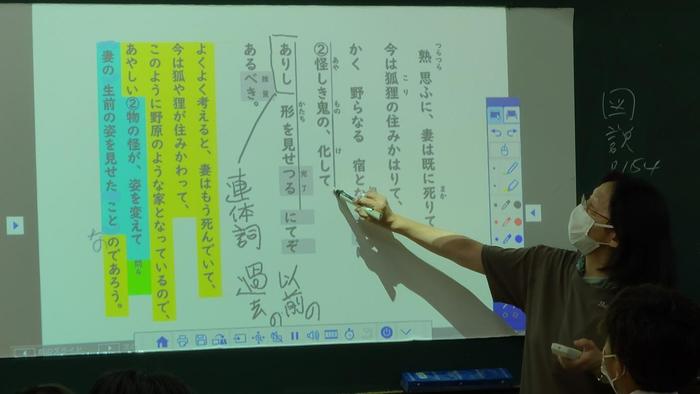 熟思ふに、妻は既に死りて
つらつら
まか
今は狐狸の住みかはりて、
こり
かく野らなる宿とな
②怪しき鬼の、化して
あや
もの
け
ありし形を見せつる にてぞ
かたち
完了
あるべき。
連体詞
過去の
以前の
よくよく考えると、妻はもう死んでいて、
今は狐や狸が住みかわって、
このように野原のような家となっているので、
あやしい②物の怪が、姿を変えて
問4
妻の生前の姿を見せた ことのであろう。
な
図説
P154